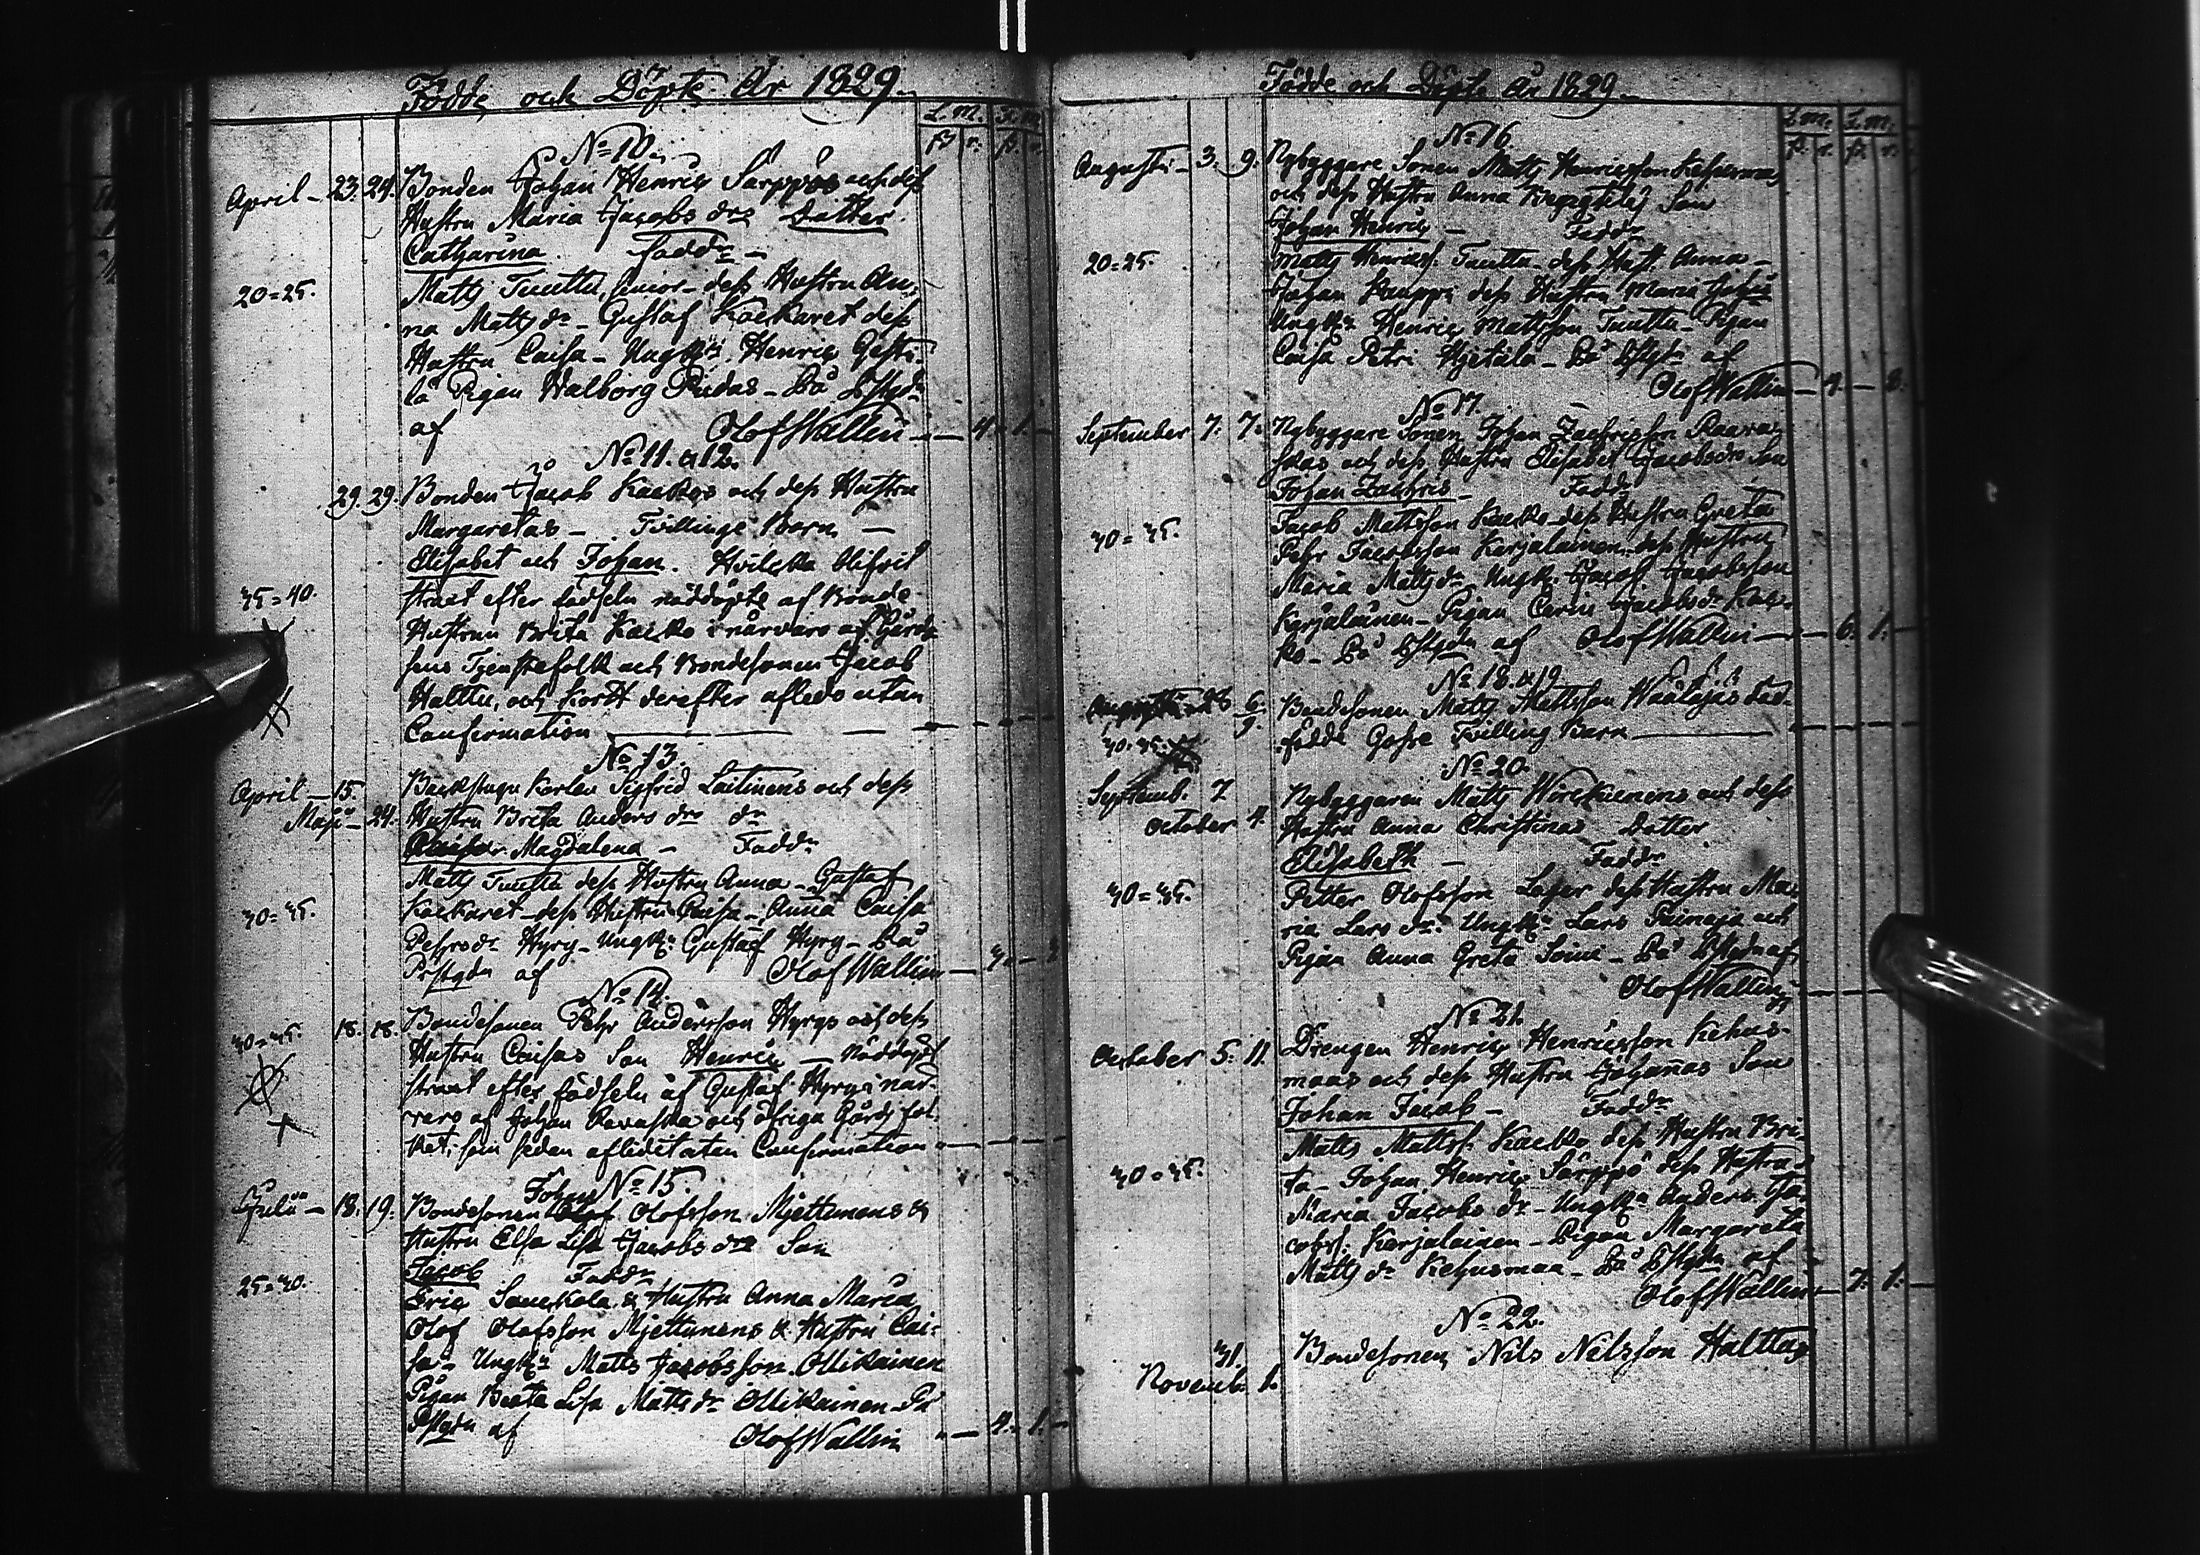 Födde och Döpte År 1829.
L. m. F. m.
No 10.
April - 23. 24. Bonden Johan Henric Särppös och dess
Hustru Maria Jacobs drs Dotter
Catharina. Faddr -
20=25. Matts Tuuttu, senior - dess Hustru An-
na Matts dr - Gustaf Kackaret dess
Hustru Caisa - Ungkn Henric
la Pigan Walborg Rudas - På
af Olof Wallin - 4. 1. -
No 11. & 12.
29. 29. Bonden Jacob Kackos och dess Hustru
Margaretas - Tvillinge Barn -
Elisabet och Johan. Hvilcka blifvit
35=40. straxt efter födseln nöddöpte af Bonde
Hustrun Brita Kacko i närvaro af Gårde
sens Tjenstefolk och Bondesonen Jacob
Halttu, och kort derefter afledo utan
Confirmation
No 13.
April - 15. Backstugu Karlen Sigfrid Laitinens och dess
Maji - 24. Hustru Brita Anders drs dr
Magdalena - Faddr
Matts Tuuttu dess Hustru Anna - Gustaf
30=35. Kackaret - dess Hustru Caisa - Anna Caisa
Pehrsdr Hyry - Ungkn Gustaf Hyry - På
Prstgdn af Olof Wallin
No 14.
30=35. 18. 18. Bondesonen Pehr Andersson Hyrys och dess
Hustru Caisas Son Henric - Nöddöpt
straxt efter födseln af Gustaf Hyry i när-
varo af Johan och öfriga Gårds fol-
ket, som sedan afled utan Confirmation
No 15.
Johan
Julii - 18. 19. Bondesonen Olofsson Mjettunens &
Hustru Elsa Lisa Jacobs drs Son
Jacob Faddr
25=30. Eric & Hustru Anna Maria
Olof Olofsson Mjettunens & Hustru Cai-
sa - Ungkn Matts Jacobsson Ollikainen
Pigan Beata Lisa Matts dr Ollikainen - På
Pstgdn af Olof Wallin - 4. 1. -
Födde och Döpte År 1829.
L. m. F. m.
No 16.
Augusti - 3. 9. Nybyggare Sonen Matts Henricsson
och dess Hustru Anna Son
Johan Henric - Faddr
20=25. Matts Henricss. Tuuttu - dess Hust. Anna -
Johan dess Hustru Maria
Ungkn Henric Mattsson Tuuttu - Pigan
Caisa Petri Hietala - På af
Olof Wallin
No 17.
September 7. 7. Nybyggare Sonen Johan Zachrisson
och dess Hustru Elisabet Jacobsdrs Son
Johan Zachris - Faddr
30=35. Jacob Mattsson Kacko - dess Hustru Greta
Pehr Jacobsson Karjalainen - dess Hustru
Maria Matts dr - Ungk. Jacob Jacobsson
Karjalainen - Pigan Carin Jacobs dr Kac-
ko - På af Olof Wallin - 6. 1. -
No 18. & 19.
6. Bondesonen Matts Mattsson död-
9. födde Gosse Tvilling Barn
30=35.
No 20.
Septemb. 7 Nybyggaren Matts Wirckunens och dess
October 4. Hustru Anna Christinas Dotter
Elisabeth - Faddr
30=35. Petter Olofsson Lager dess Hustru Ma-
ria Lars dr - Ungkn Lars och
Pigan Anna Greta Soini - På af
Olof Wallin
No 21.
October 5. 11. Drengen Henric Henricsson Kehus-
maas och dess Hustru Johannas Son
Johan Jacob - Faddr
Matts Mattss. Kacko, dess Hustru Bri-
30=35. ta - Johan Henric Särppö dess Hustru
Maria Jacobs dr - Ungkn Anders Ja-
cobss. Karjalainen - Pigan Margareta
Matts dr Kehusmaa - På af
Olof Wallin - 7. 1. -
No 22.
31. Bondesonen Nils Nilsson Halttus
Novemb. 1.